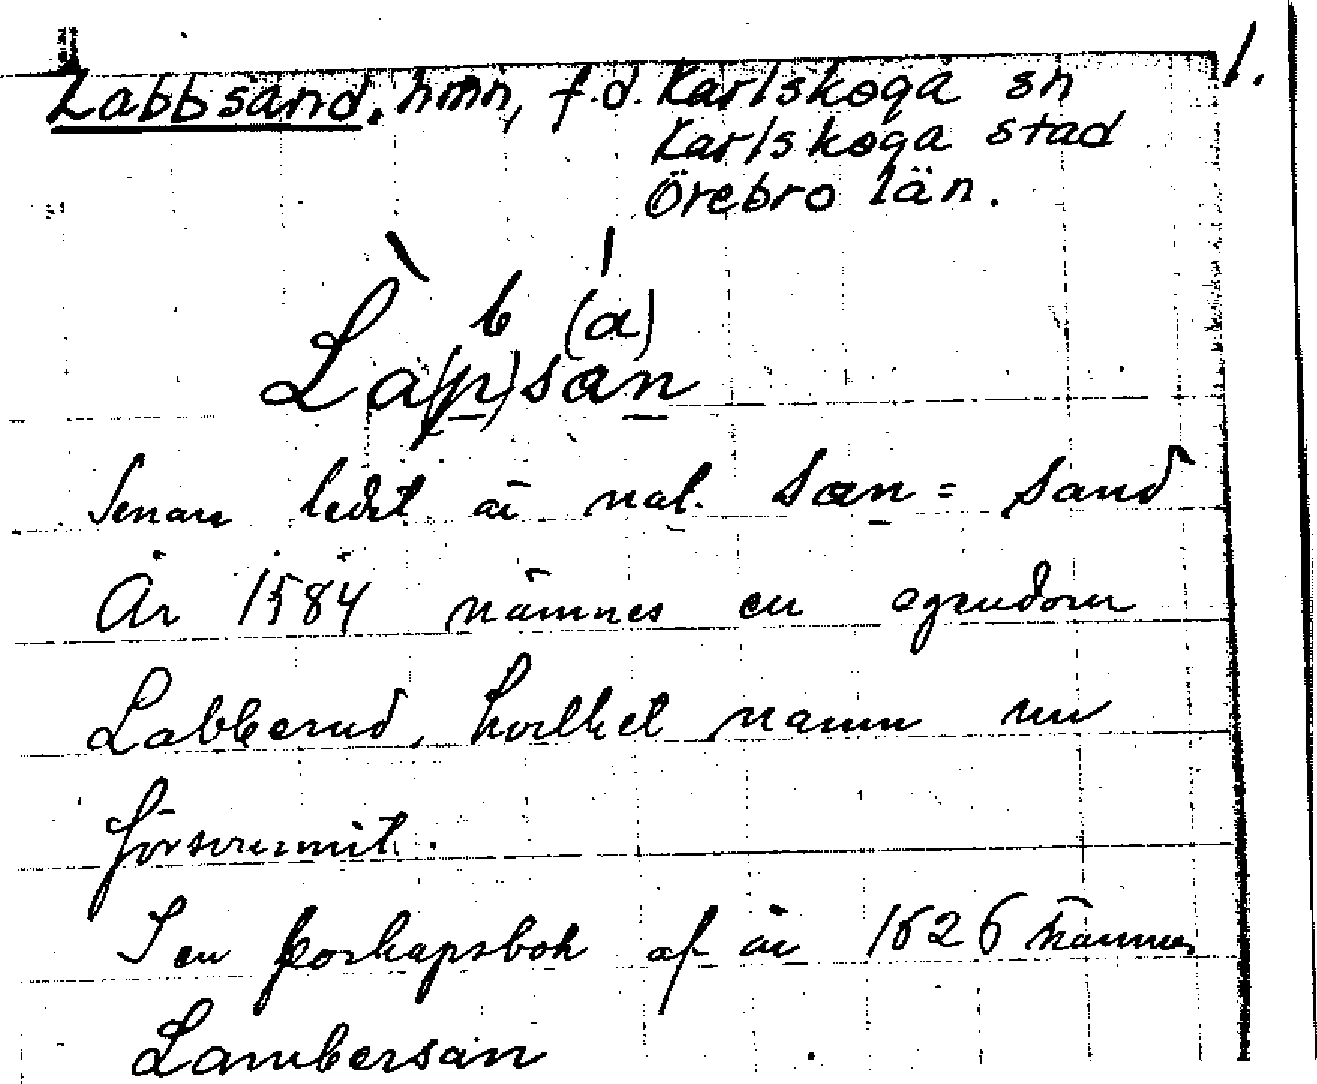 1.
Labbsand. hmn, f.d. Karlskoga sn
Karlskoga stad
Örebro län.
b (a)
La(p)sæn
Senare ledet är nat. Sæn = Sand
År 1584 nämnes en egendom
Labberud, hvilket namn nu
försvunnit.
I en Boskapsbok af år 1626 nämnes
Lambersan